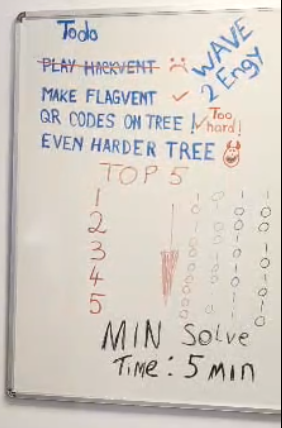 Todo
PLAY HACKVENT
WAVE
2 Engy
MAKE FLAGVENT
QR CODES ON TREE ! Too hard!
EVEN HARDER TREE
TOP 5
1
2
3
4
5
MIN Solve
Time: 5 min